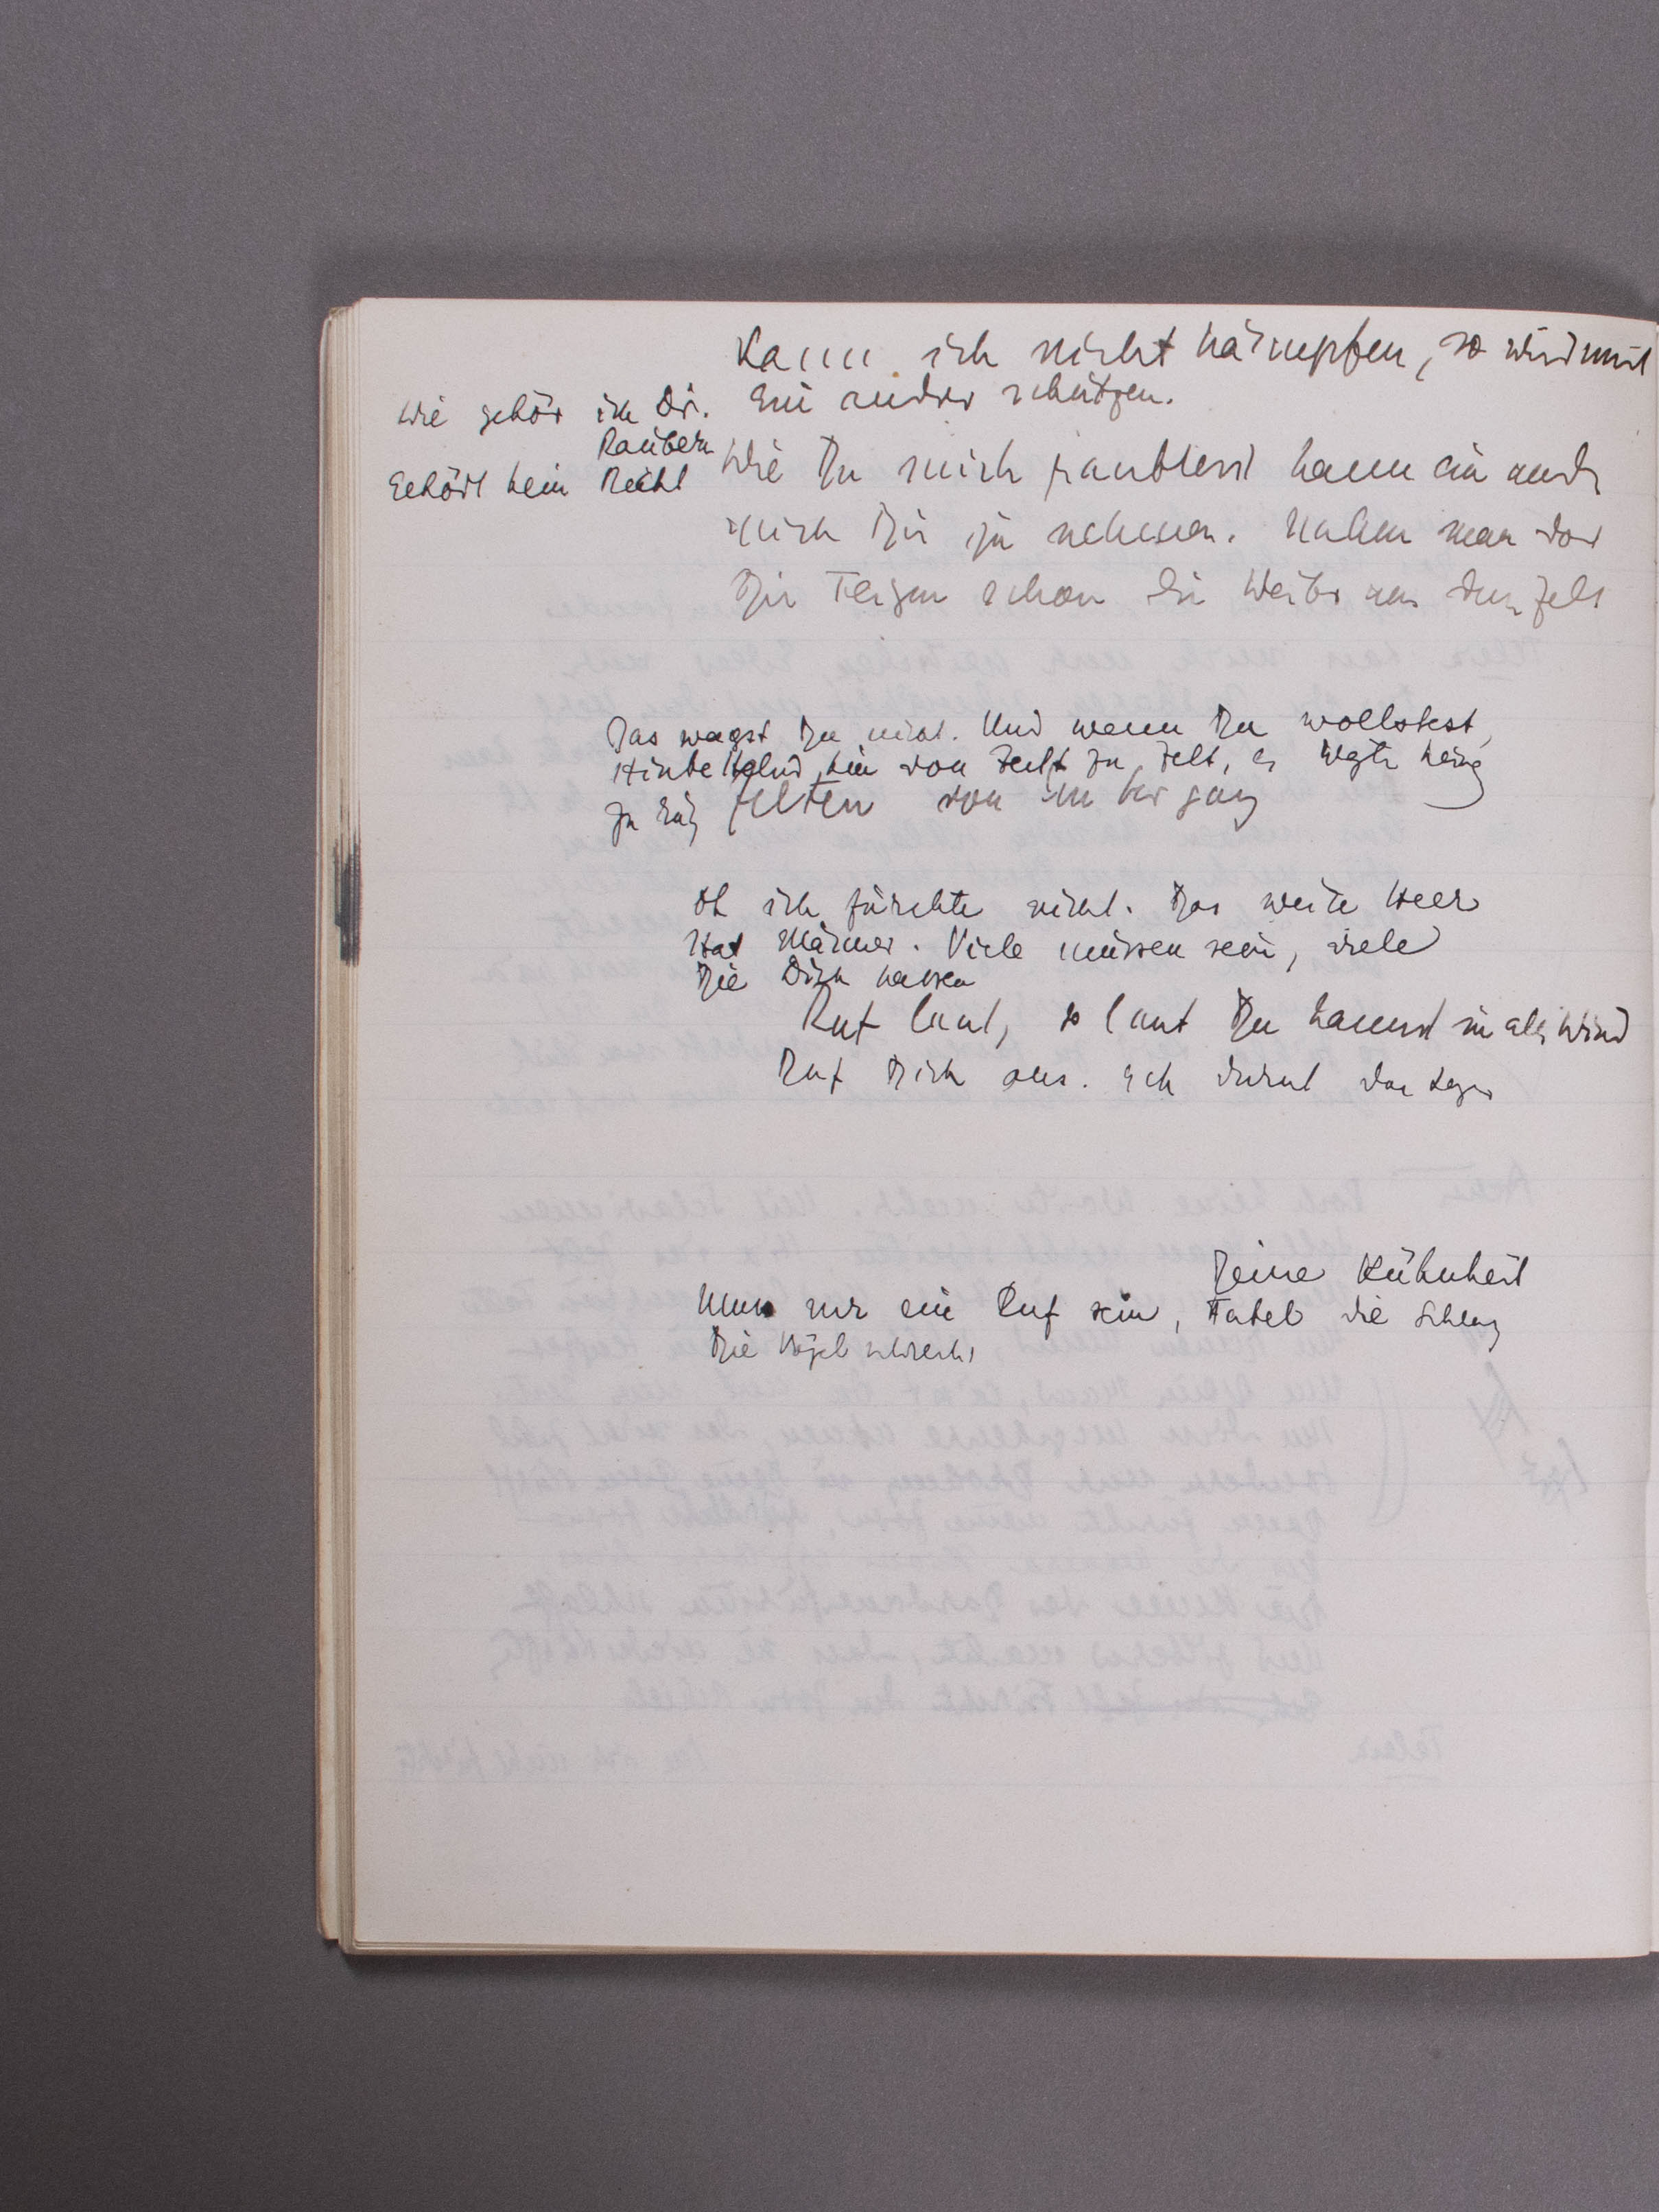 Kann ich nicht kämpfen, so wird mich
Ein andrer schützen.
Wie gehör ich Dir.
Räubern
Gehört kein Recht
Wie Du mich raubtest kann ein andr
Mich Dir zu nehmen. Nahm man doch
Dir Feigen schon die Weiber aus dem Zelt
Das wagst Du nicht. Und wenn Du wolltest,
hin von Zelt zu Zelt, es wagte keiner
Zu Dir
Oh ich fürchte nicht. Das weite Heer
Hat Männer. Viele müssen sein, viele
Die Dich hassen
Ruf laut, so laut Du kannst in als Wind
Ruf Dich aus. Ich
Deine Kühnheit
Muss nur ein Ruf sein, Fabel die
Die Vögel schreckt